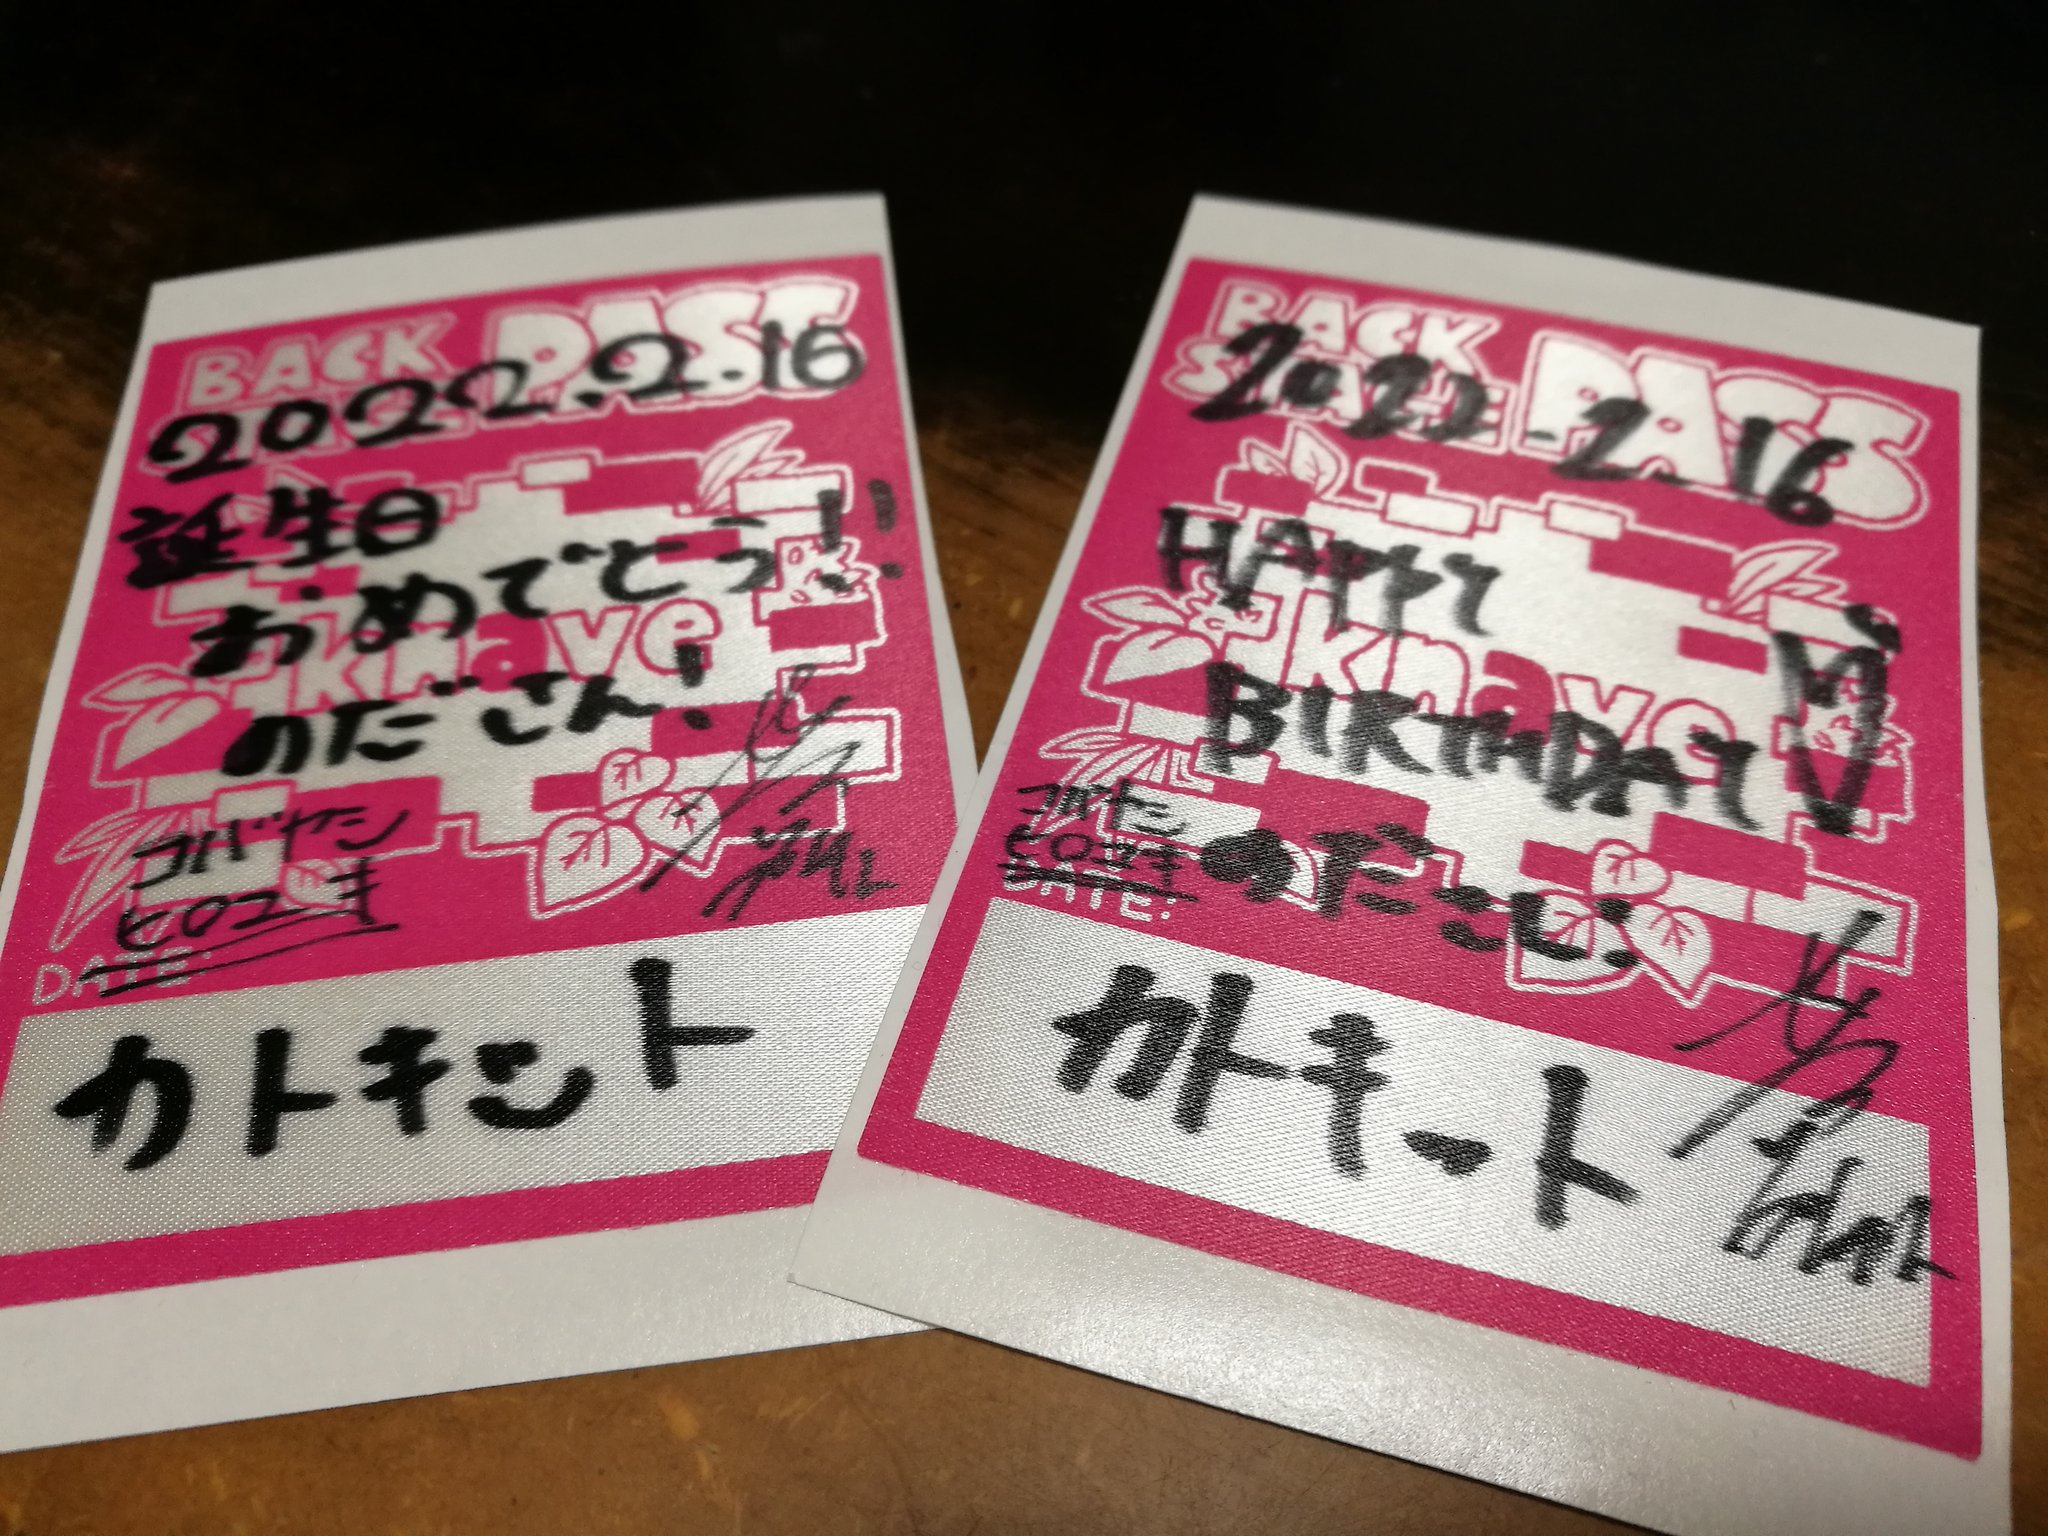 BACK STAGE PASS
2022.2.16
誕生日
おめでとう!!
knave
のださん!
コバヤシ
ヒロユキ
DATE:
カトキット
BACK
STAGE PASS
2022.2.16
HAPPY
knave
BIRTHDAY
ヒロユキ
のだ
DATE:
カトキット